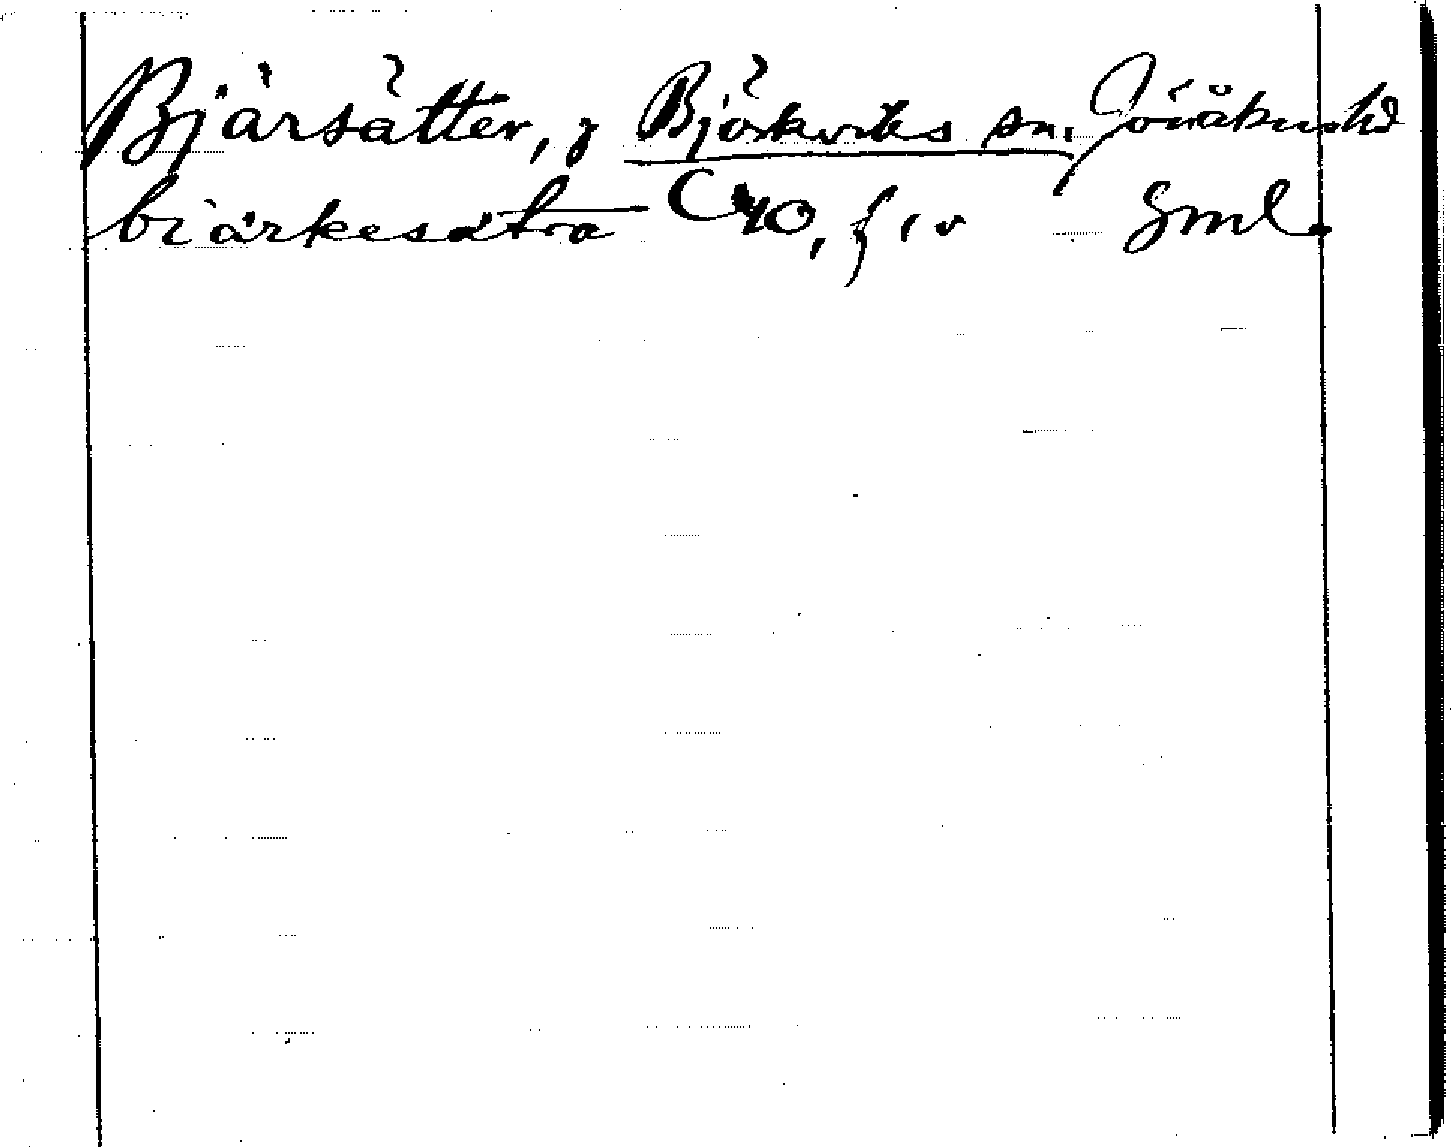 Bjärsätter, g Björkviks sn. Jönåkers hd
biærkesætra C 40, f 1 v Sml.